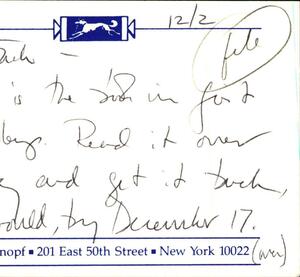 12/2
file
is the book in first
Read it over
and get it back,
by December 17.
nopf ▪ 201 East 50th Street ▪ New York 10022
(over)